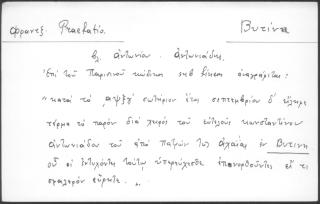 φραντζ. Praefatio. Βυτίνα
βλ. ἀντωνίου. ἀντωνιάδης.
Ἐπὶ τοῦ Παρισινοῦ κώδικος ἀναγράφεται:
"κατὰ τὸ αψξγ' σωτήριον ἔτος σεπτεμβρίου δ' εἴληφε
τέρμα τὸ παρὸν διὰ χειρὸς τοῦ εὐτελοῦς κωνσταντίνου
ἀντωνιάδου τοῦ ἀπὸ Πατρῶν τῆς ἀχαΐας ἐν Βυτίνῃ
οὗ οἱ ἐντυχόντες τούτῳ ὑπερεύχεσθε ἐπανορθοῦντες εἴ τι
σφαλερὸν εὕρητε. ...